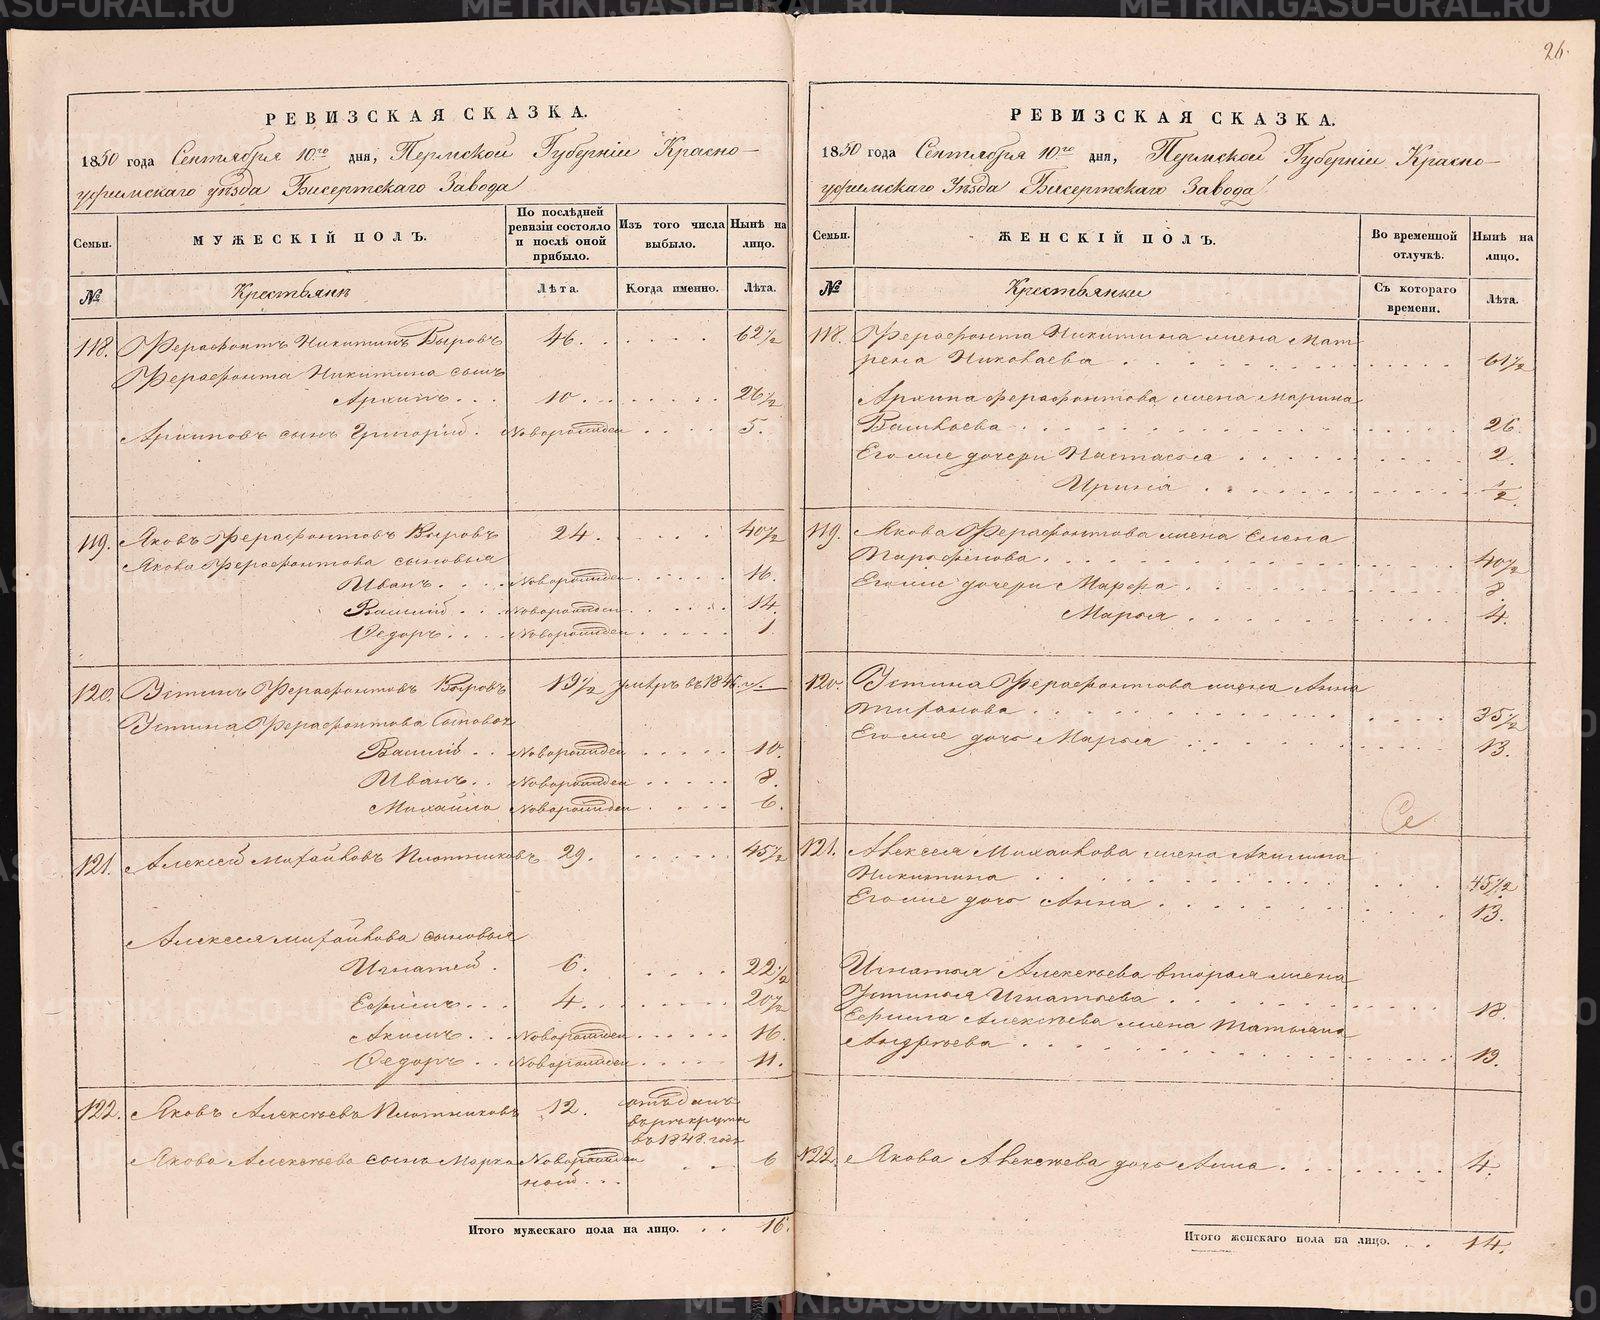 26.
РЕВИЗСКАЯ СКАЗКА.
1850 года Сентября 10го дня, Пермской Губерніи Красно-
уфимскаго уѣзда Бисертскаго Завода
Семьи.
МУЖЕСКІЙ ПОЛЪ.
По послѣдней ревизіи состояло и послѣ оной прибыло.
Изъ того числа выбыло.
Нынѣ на лицо.
№
Крестьяне
Лѣта.
Когда именно.
Лѣта.
118. Ферафонтъ Никитинъ Быровъ 46. 62½
Ферафонта Никитина сынъ
Архипъ 10 26½
Архиповъ сынъ Григорій Новорожден 5.
119. Яковъ Ферафонтовъ Быровъ 24. 40½
Якова Ферафонтова сыновья
Иванъ Новорожден 16.
Василій Новорожден 14.
Федоръ Новорожден 1.
120. Устинъ Ферафонтовъ Быровъ 19½ умеръ въ 1846. г.
Устина Ферафонтова Сыновья
Василій Новорожден 10.
Иванъ Новорожден 8.
Михайло Новорожден 6.
121. Алексей Михайловъ Плотниковъ 29. 45½
Алексея Михайлова сыновья
Игнатей 6. 22½
Ефимъ 4. 20½
Акимъ Новорожден 16.
Федоръ Новорожден 11.
122. Яковъ Алексѣевъ Плотниковъ 12. отданъ
въ рекруты
въ 1848. годѣ
Якова Алексѣева сынъ Марко Новорожден 6
ной
Итого мужескаго пола на лицо. 16.
РЕВИЗСКАЯ СКАЗКА.
1850 года Сентября 10го дня, Пермской Губерніи Красно-
уфимскаго Уѣзда Бисертскаго Завода
Семьи.
ЖЕНСКІЙ ПОЛЪ.
Во временной отлучкѣ.
Нынѣ на лицо.
№
Крестьянки
Съ котораго времени.
Лѣта.
118. Ферафонта Никитина жена Мат
рена Николаева 61½
Архипа Ферафонтова жена Марина
Васильева 26.
Его же дочери Настасья 2.
Ирина ½
119. Якова Ферафонтова жена Елена
Парфенова 40½
Его же дочери Марфа 8.
Марья 4.
120. Устина Ферафонтова жена Анна
35½
Его же дочь Марья 13.
121. Алексея Михайлова жена Акилина
Никитина 45½
Его же дочь Анна 13.
Игнатья Алексѣева вторая жена
Устинья Игнатьева 18.
Ефима Алексѣева жена Татьяна
Андрѣева 19.
122. Якова Алексѣева дочь Анна 4.
Итого женскаго пола на лицо. 14.
METRIKI.GASO-URAL.RU